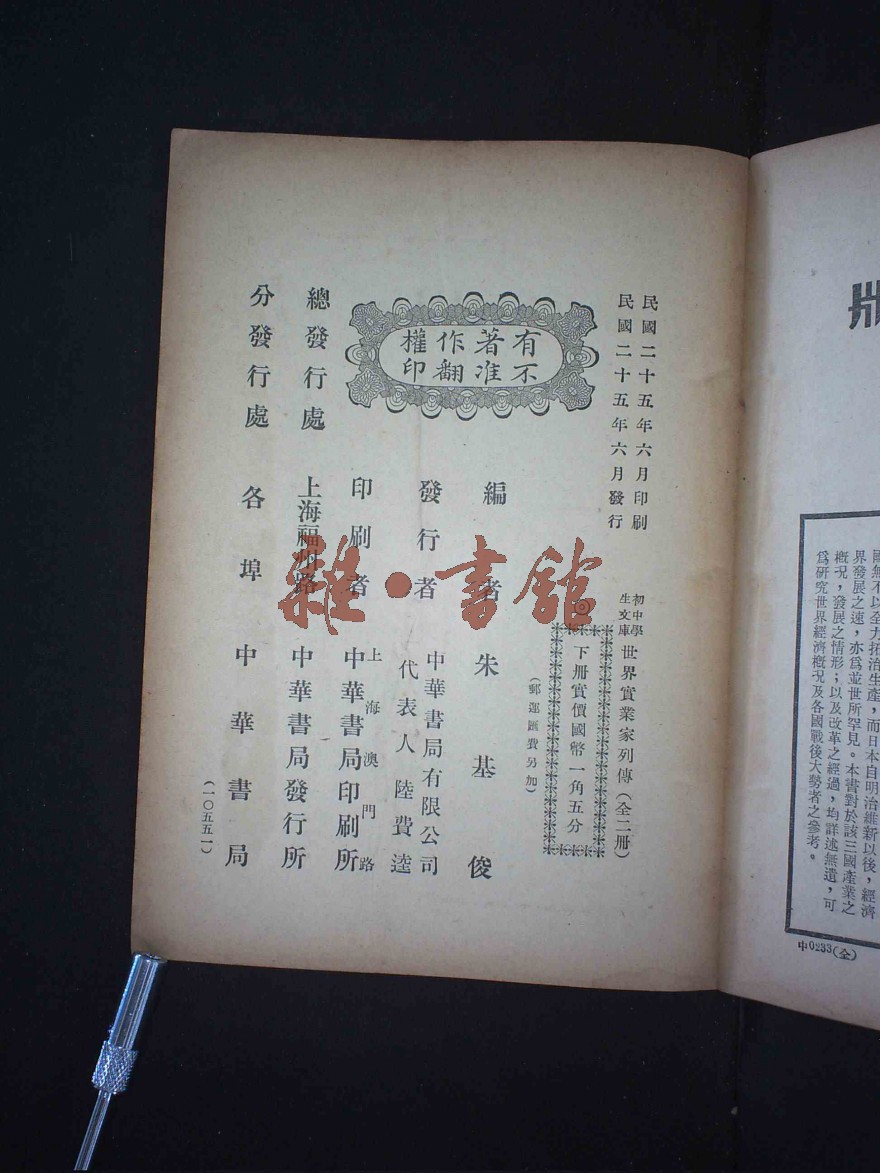 民國二十五年六月印刷
民國二十五年六月發行
初中學
生文庫
世界實業家列傳（全二冊）
◎
下冊實價國幣一角五分
（郵運匯費另加）
有著作權
不准翻印
編者
朱基俊
發行者
中華書局有限公司
代表人陸費逵
印刷者
上海澳門路
中華書局印刷所
總發行處
上海福州路
中華書局發行所
分發行處
各埠中華書局
（一〇五五一）
國無不以全力拓治生產，而日本自明治維新以後，經濟
界發展之速，亦爲並世所罕見。本書對於該三國產業之
概況，發展之情形；以及改革之經過，均詳述無遺，可
爲研究世界經濟概況及各國戰後大勢者之參考。
中0233（全）
雜·書館